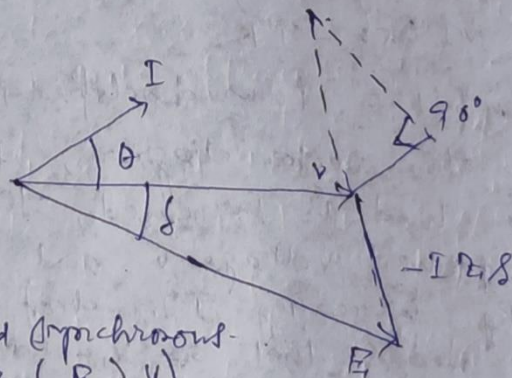 I
90°
θ
V
δ
-I Zs
synchronous.
E